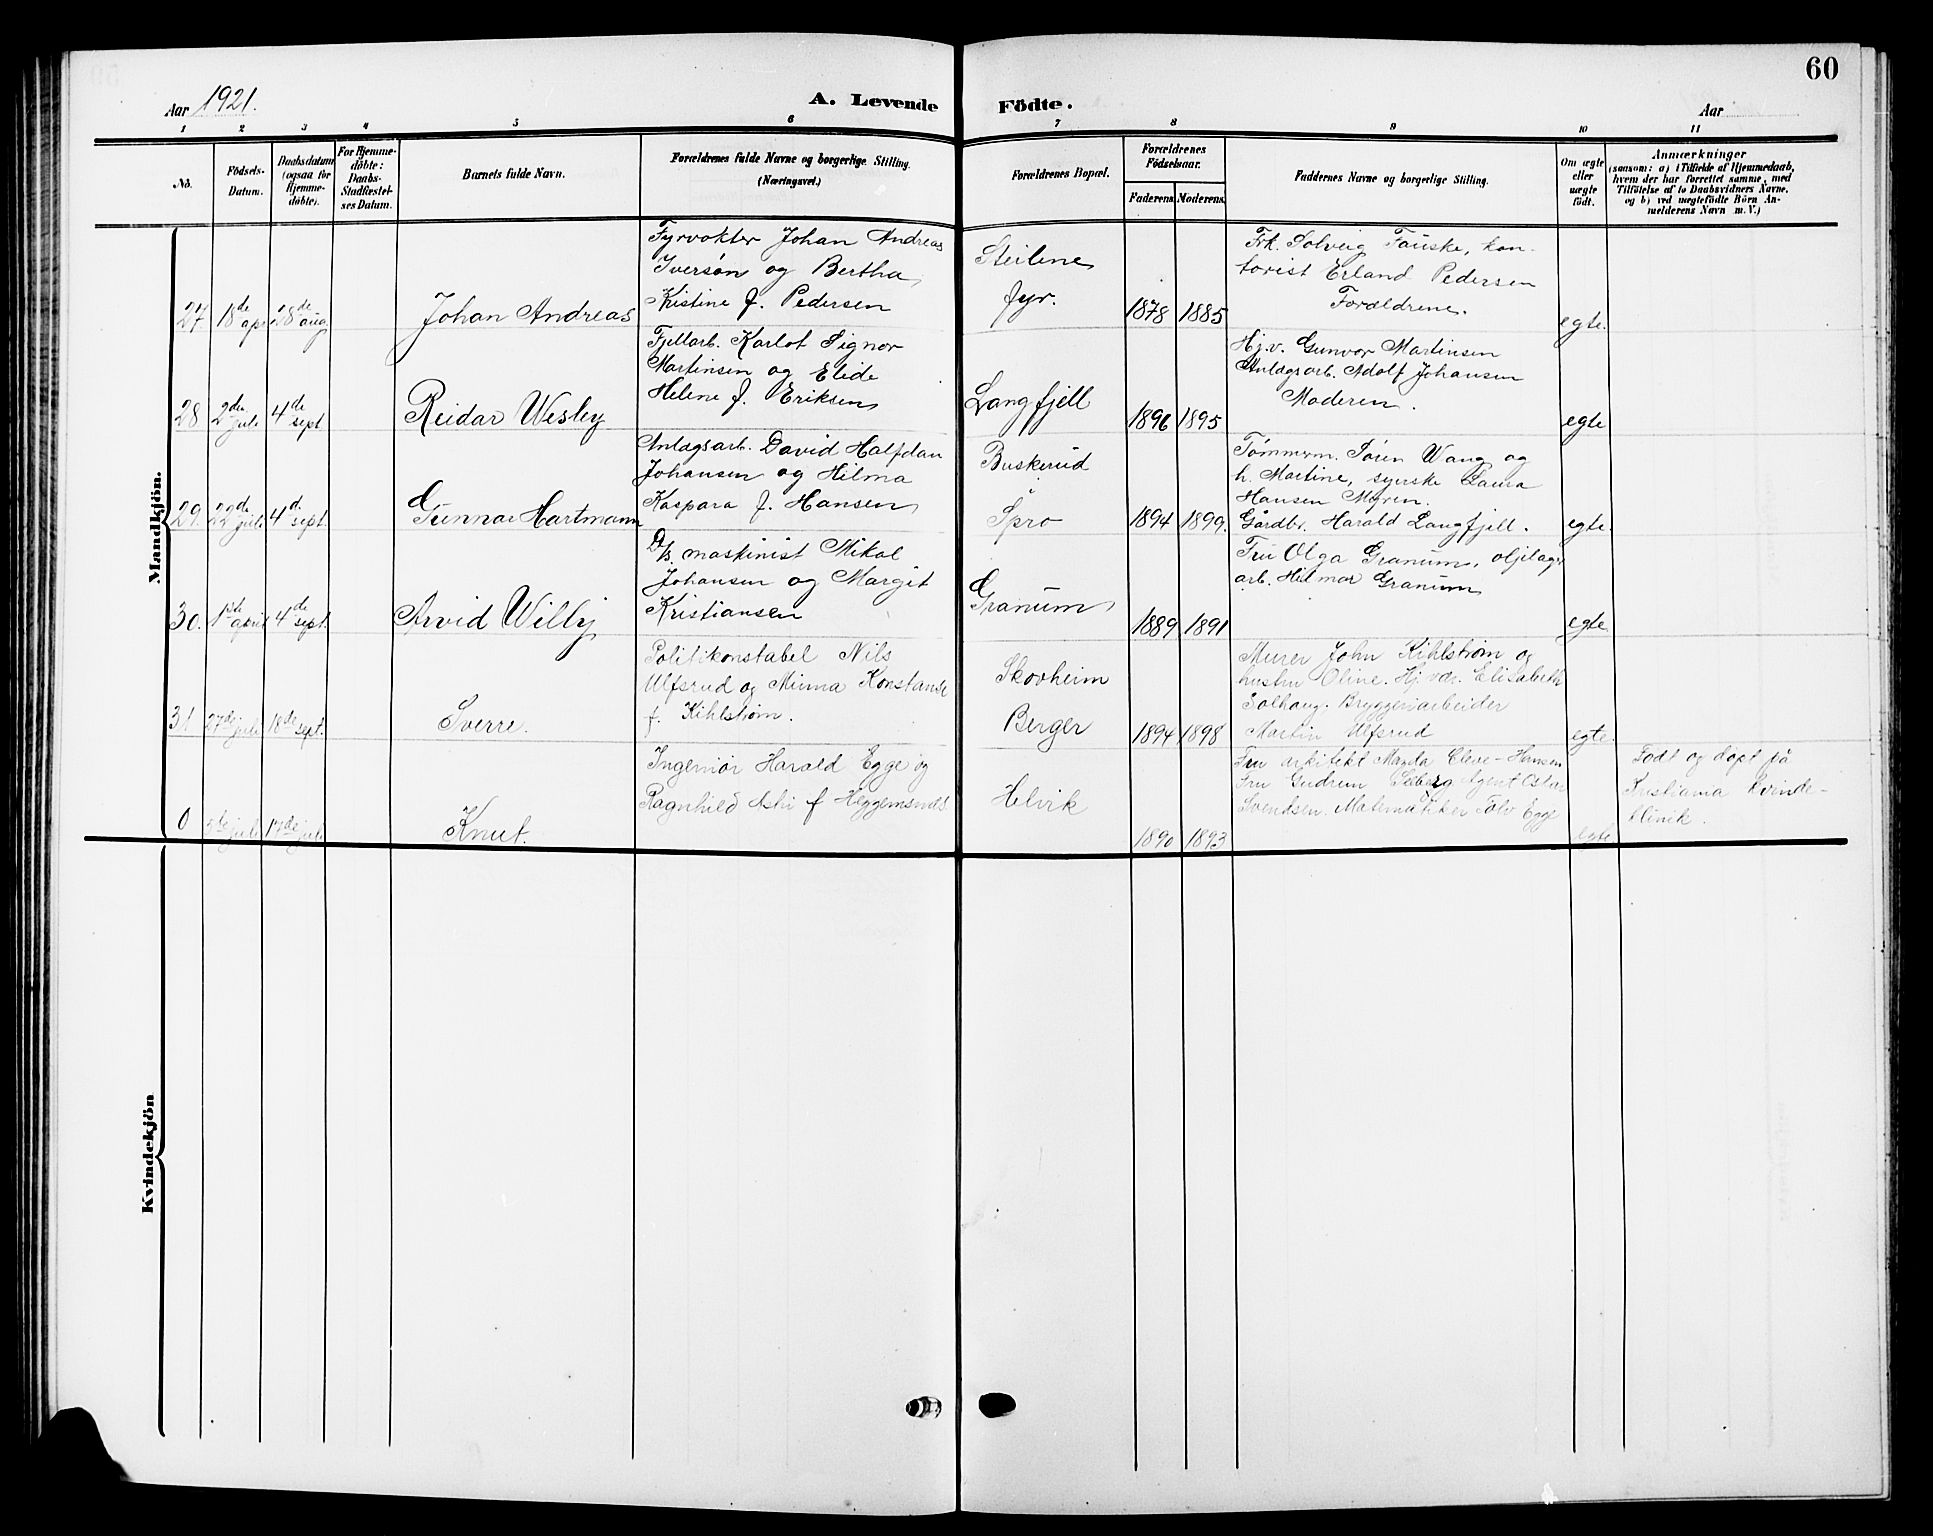 60
Aar 1921.
A. Levende Födte.
Aar
1 2 3 4 5 6 7 8 9 10 11
No.
Födsels-
Datum.
Daabsdatum
(ogsaa for
Hjemme-
döbte).
For Hjemme-
döbte:
Daabs-
Stadfæstel-
ses Datum.
Barnets fulde Navn.
Forældrenes fulde Navne og borgerlige Stilling.
(Næringsvei.)
Forældrenes Bopæl.
Forældrenes
Födselsaar.
Faderens Moderens
Faddernes Navne og borgerlige Stilling.
Om ægte
eller
uægte
födt.
Anmærkninger
(saasom: a) i Tilfælde af Hjemmedaab,
hvem der har forrettet samme, med
Tilföielse af to Daabsvidners Navne,
og b) ved uægtefödte Börn An-
melderens Navn m. V.)
Mandkjön.
27 18de apr. 28de aug.
Johan Andreas
Fyrvokter Johan Andreas
Iversøn og Bertha
Kristine f. Pedersen
Steilene
fyr.
1878 1885
Frk. Solveig Fauske, kon-
torist Erland Pedersen
Forældrene.
egte.
28 2den juli 4de sept
Reidar Wesley
Fjellarb. Karlot Signor
Martinsen og Elide
Helene f. Eriksen
Langfjell
1896 1895
Hj.v. Gunvor Martinsen
Anlægsarb. Adolf Johansen
Moderen.
egte
29. 22de juli 4d. sept.
Gunnar Hartmann
Anlægsarb. David Halfdan
Johansen og Hilma
Kaspara f. Hansen
Buskerud
Spro
1894 1899.
Tømmerm. Søren Wang og
h. Martine, syerske Laura
Hansen Myren.
Gårdbr. Harald Langfjell.
egte.
30. 1ste april 4de sept.
Arvid Willy
D/s. maskinist Mikal
Johansen og Margit
Kristiansen
Granum
1889 1891
Fru Olga Granum, oljelager
arb. Hilmar Granum
egte
31 27de juli 18de sept.
Sverre.
Politikonstabel Nils
Ulfsrud og Minna Konstanse
f. Kihlstrøm.
Skovheim
Berger
1894 1898
Murer John Kihlstrøm og
hustru Oline. Hj.vær. Elisabeth
Solhaug. Bryggeriarbeider
Martin Ulfsrud
egte.
0 5te juli 17de juli
Knut.
Ingeniør Harald Egge og
Ragnhild Asti f Heggemsnes
Helvik
1890 1893
Fru arkitekt Magda Cleve-Hansen
Fru Gudrun Seeberg Agent Oskar
Svendsen. Matematiker Tolv Egge
egte
Født og døpt på
Kristiania Kvinde-
klinik.
Kvindekjön